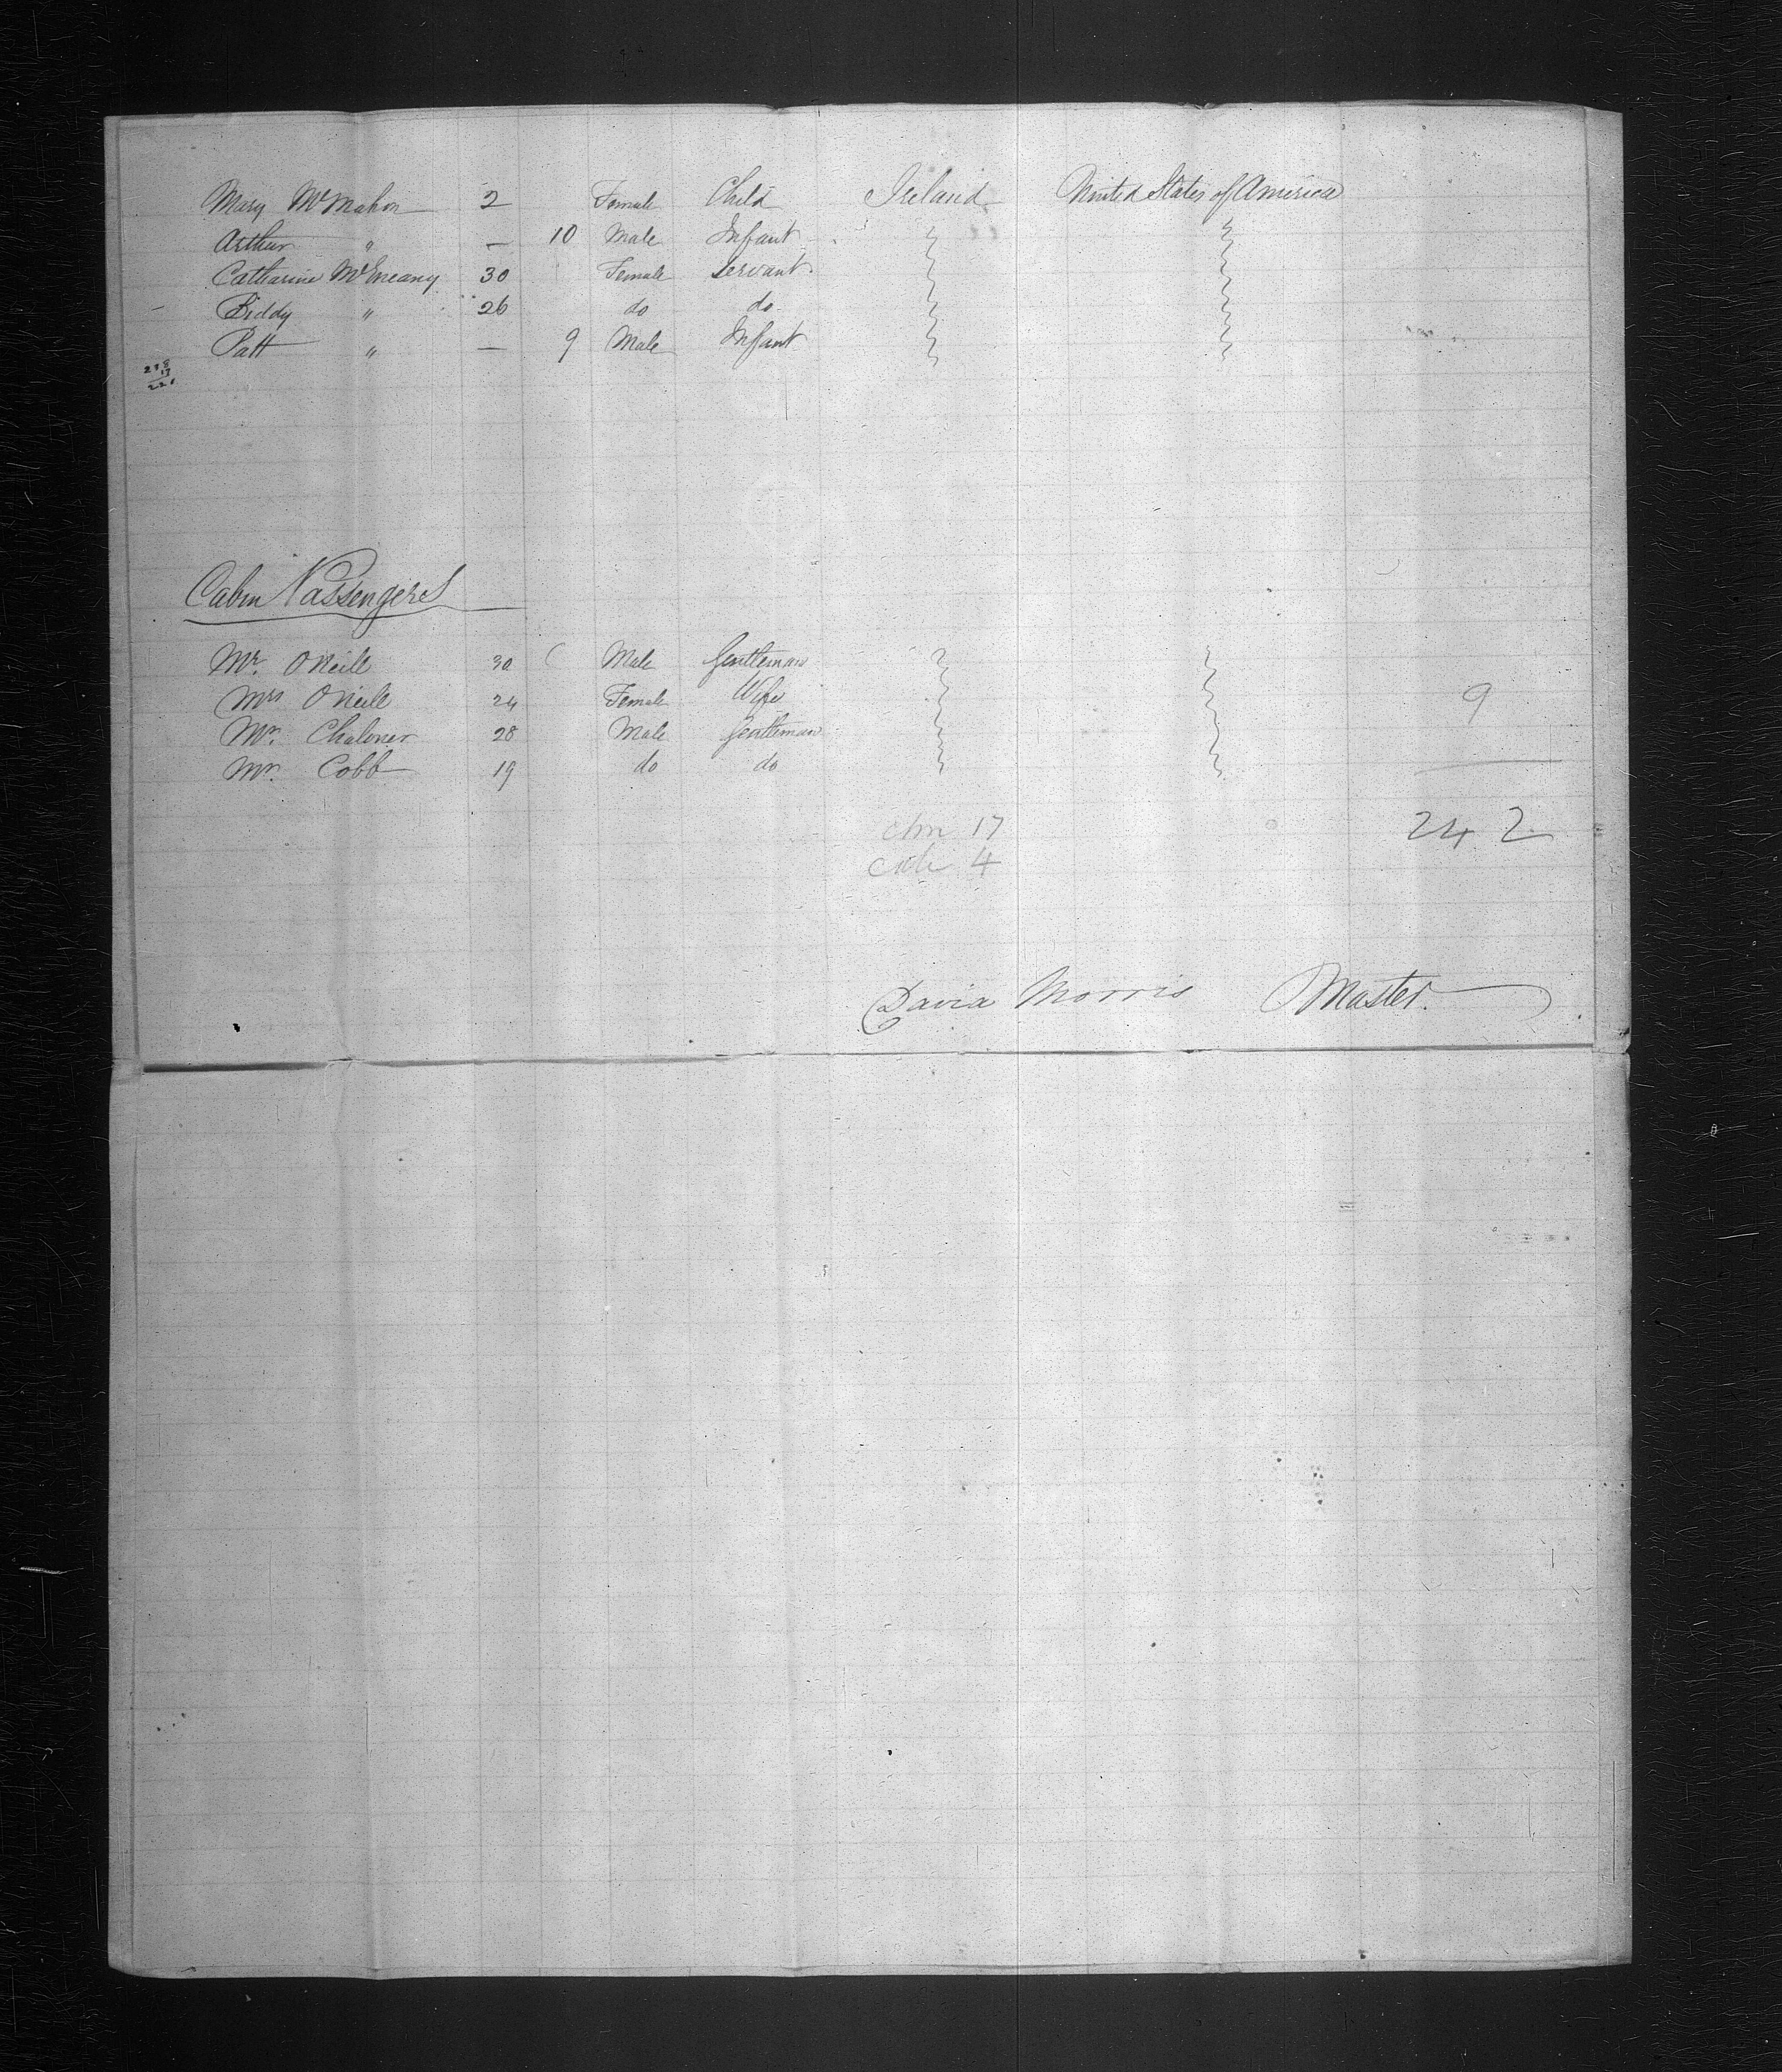 Mary McMahon 2 Female Child Ireland United States of America
Arthur " — 10 Male Infant
Catharine McEneany 30 Female Servant
Biddy " 26 do do
Patt " — 9 Male Infant
238
17
221
Cabin Passengers
Mr. O'Neill 30 Male Gentleman
Mrs O'Neill 24 Female Wife 9
Mr. Chaloner 28 Male Gentleman
Mr. Cobb 19 do do
17
4
242
David Morris Master.